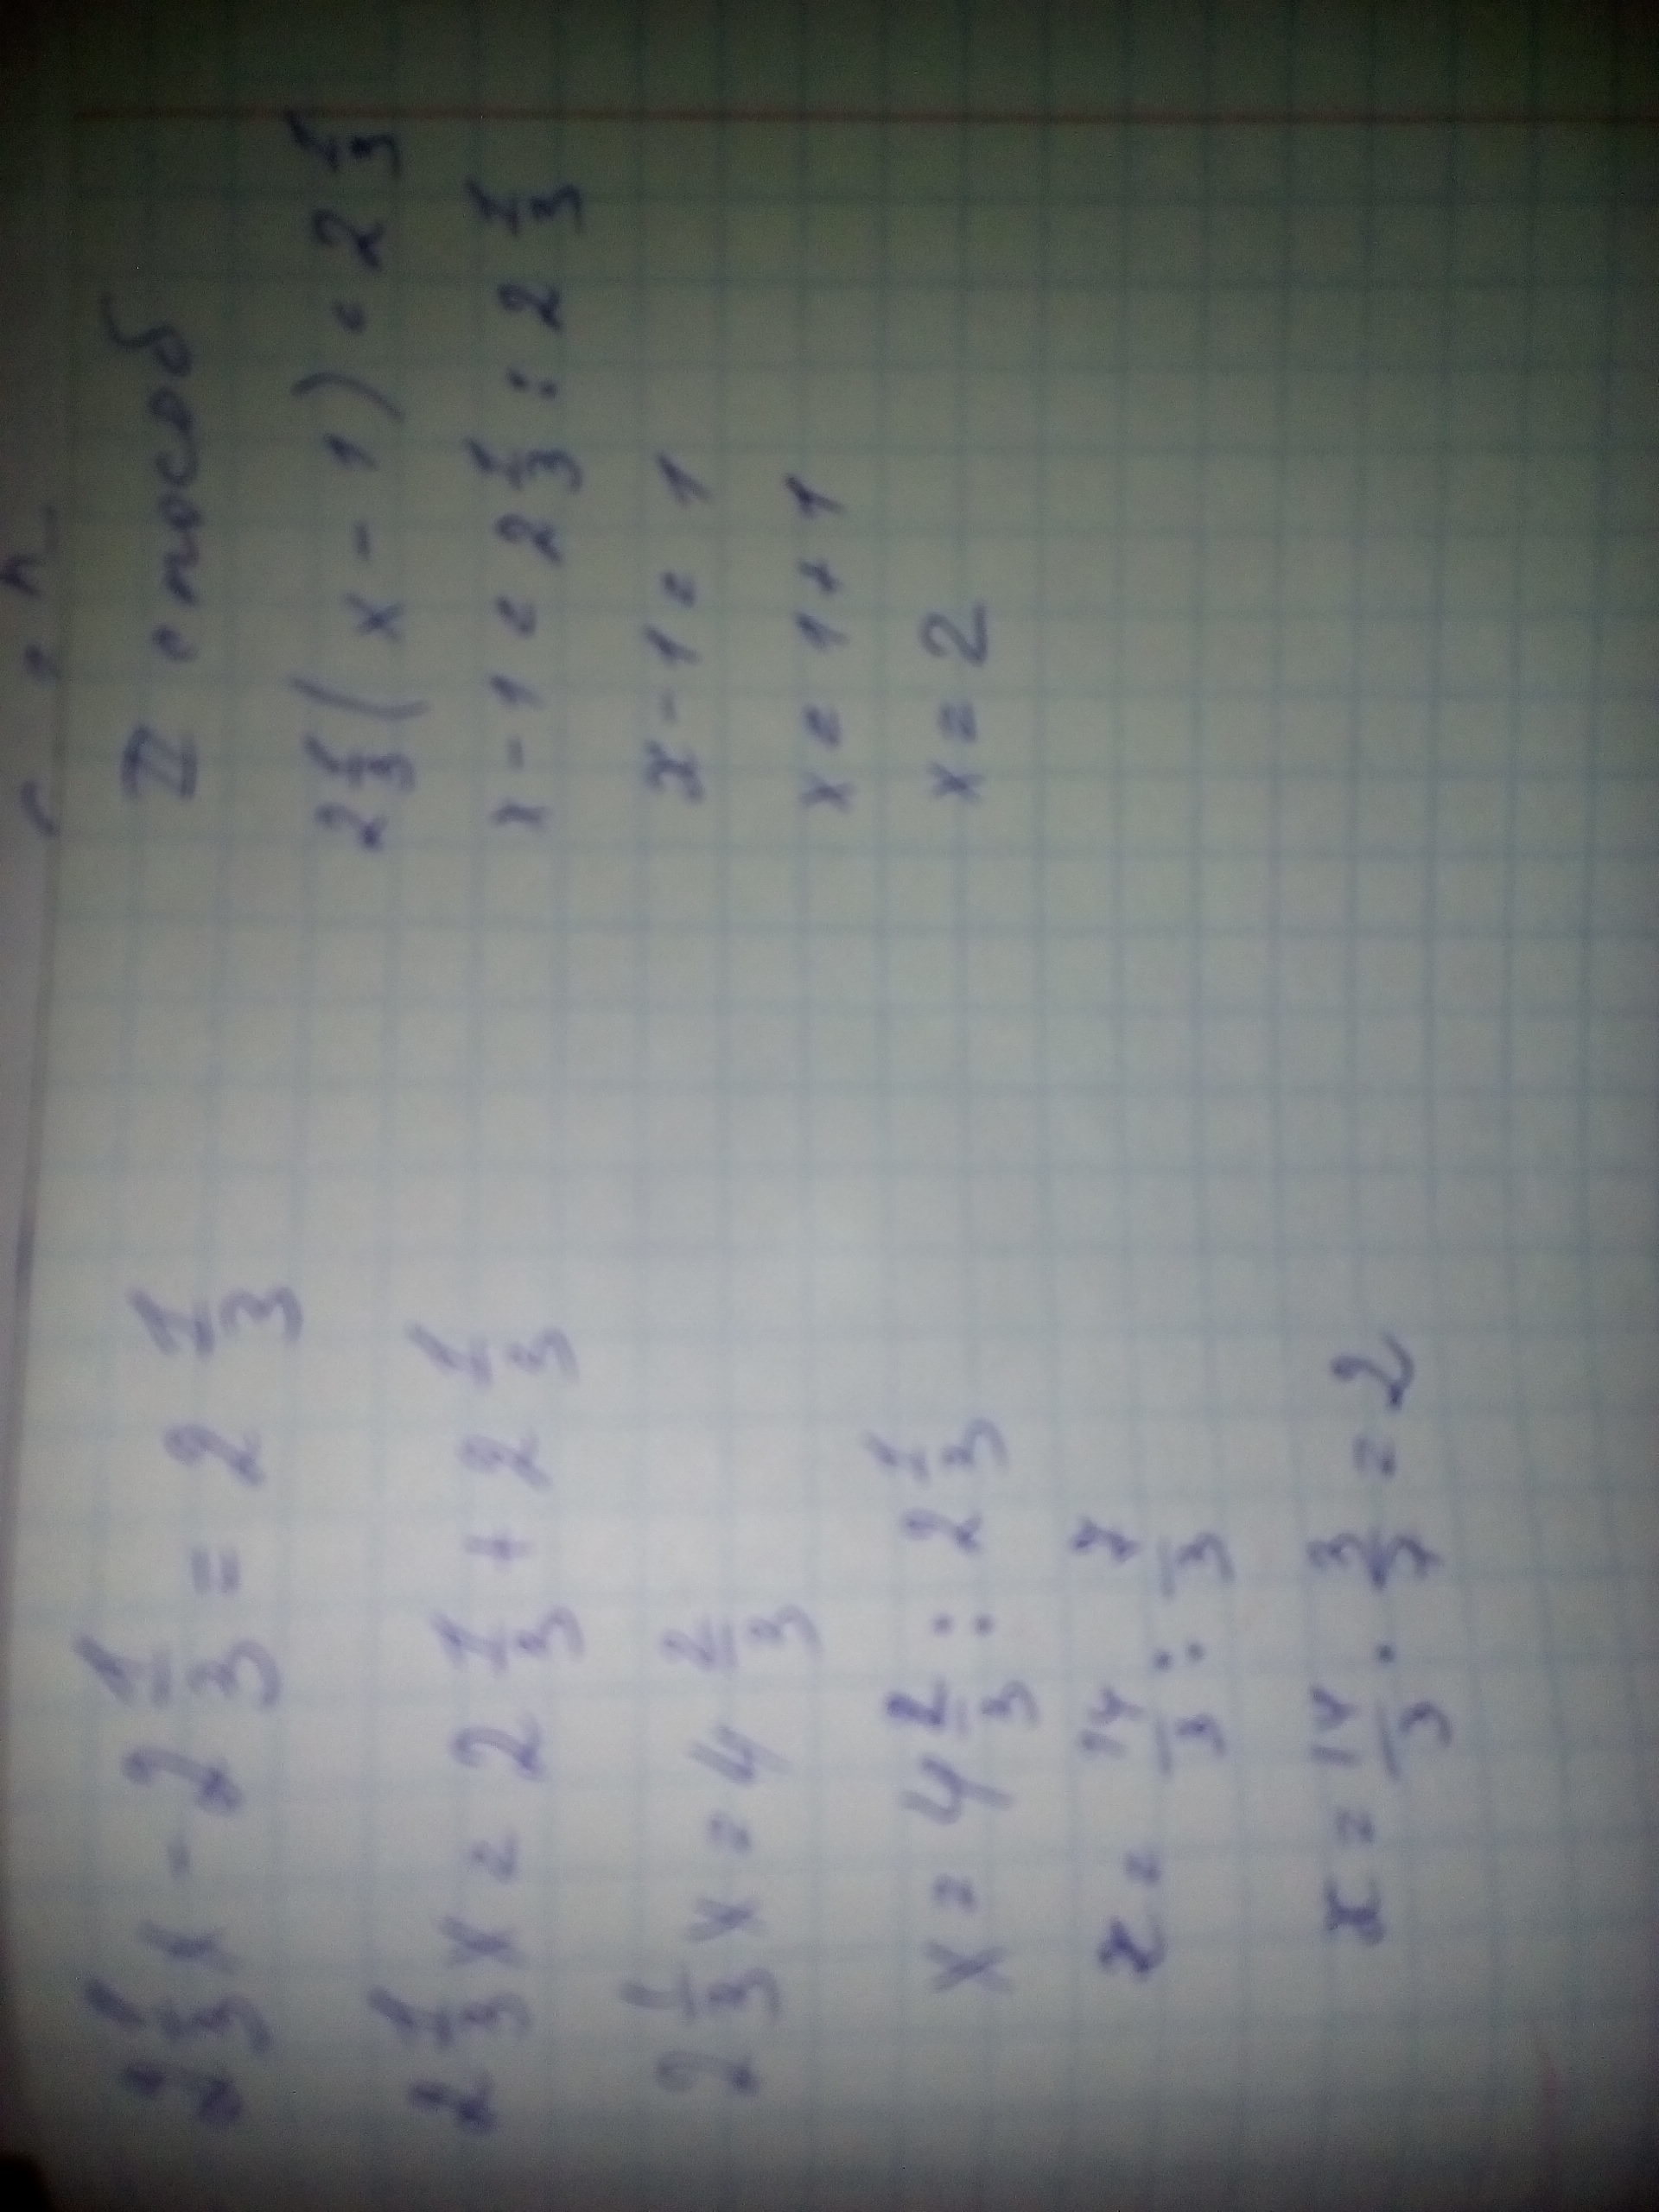 2 1/3 x - 2 1/3 = 2 1/3
2 1/3 x = 2 1/3 + 2 1/3
2 1/3 x = 4 2/3
x = 4 2/3 : 2 1/3
x = 14/3 : 7/3
x = 14/3 · 3/7 = 2
II способ
2 1/3 (x - 1) = 2 1/3
x - 1 = 2 1/3 : 2 1/3
x - 1 = 1
x = 1 + 1
x = 2